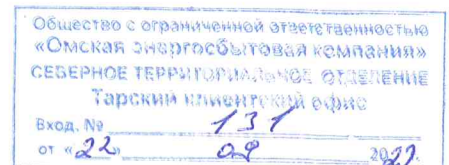 Общество с ограниченной ответственностью
«Омская энергосбытовая компания»
СЕВЕРНОЕ ТЕРРИТОРИАЛЬНОЕ ОТДЕЛЕНИЕ
Тарский клиентский офис
Вход. № 131
от «22» 09 2022.